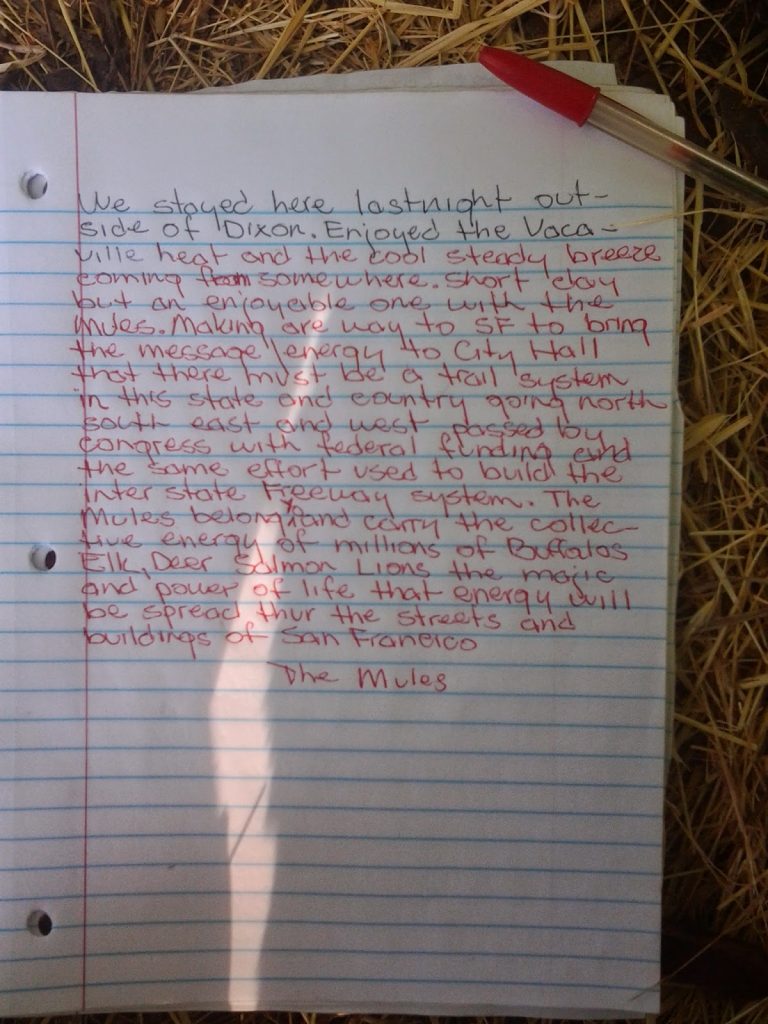 We stayed here lastnight out-
side of Dixon. Enjoyed the Vaca-
ville heat and the cool steady breeze
coming from somewhere. Short day
but an enjoyable one with the
mules. Making are way to SF to bring
the message/energy to City Hall
that there must be a trail system
in this state and country going north
south east and west passed by
congress with federal funding and
the same effort used to build the
inter state Freeway system. The
Mules belong and carry the collec-
tive energy of millions of Buffalos
Elk, Deer Salmon Lions the majic
and power of life that energy will
be spread thur the streets and
buildings of San Francico
The Mules